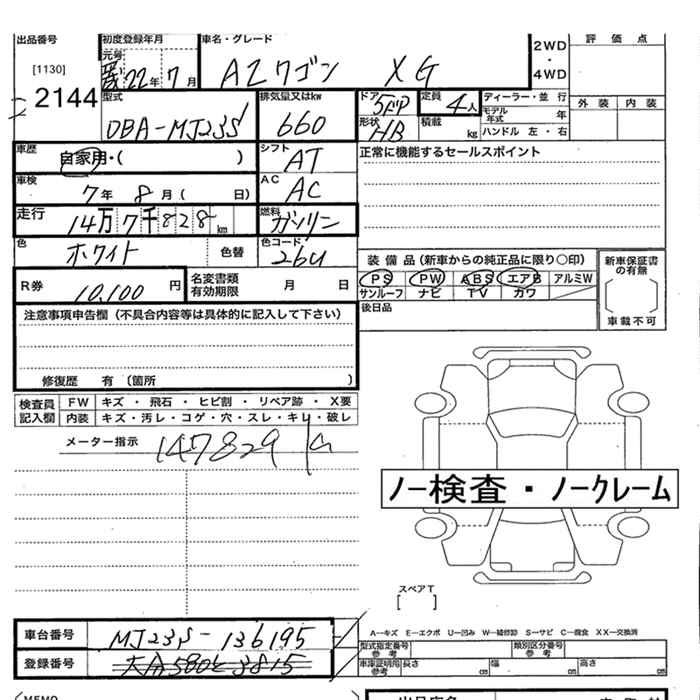 出品番号 初度登録年月 車名・グレード 評価点
元号 2WD
[1130] 22年 7月 AZワゴン XG ・
4WD
2144 型式 排気量又はkw ドア 5ドア 定員 4人 ディーラー・並行 外装 内装
モデル年式 年
DBA-MJ23S 660 形状 HB 積載 kg ハンドル 左・右
車歴 シフト 正常に機能するセールスポイント
自家用・( ) AT
車検 AC
7年 8月( 日) AC
走行 燃料
14万7千828km ガソリン
色 色替 色コード
ホワイト 26U 装備品(新車からの純正品に限り○印) 新車保証書の有無
R券 名変書類 PS PW ABS エアB アルミW
10,100円 有効期限 月 日 サンルーフ ナビ TV カワ
注意事項申告欄(不具合内容等は具体的に記入して下さい) 後日品 車載不可
修復歴 有 〔箇所 〕
検査員 FW キズ・飛石・ヒビ割・リペア跡・X要
記入欄 内装 キズ・汚レ・コゲ・穴・スレ・キレ・破レ
メーター指示 147829
ノー検査・ノークレーム
スペアT
[ ]
車台番号 MJ23S-136195 A-キズ E-エクボ U-凹み W-補修跡 S-サビ C-腐食 XX-交換済
型式指定番号 参考 類別区分番号 参考
登録番号 車庫証明用 参考 長さ cm 幅 cm 高さ cm
MEMO 出品店名